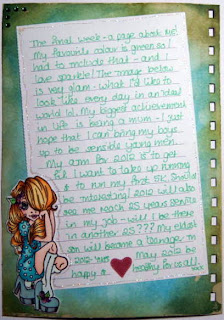 The final week - a page about me!
My favourite colour is green so I
had to include that - and I
love sparkle! The image below
is very glam - what I'd like to
look like every day in an ideal
world lol. My biggest achievement
in life is being a mum - I just
hope that I can bring my boys
up to be sensible young men.
My aim for 2012 is to get
fit. I want to take up running
& to run my first 5K. Should
be interesting! 2012 will also
see me reach 25 years service
in my job - will I be there
in another 25??? My eldest
son will become a teenager in
2012 May 2012 be
happy & healthy for us all.